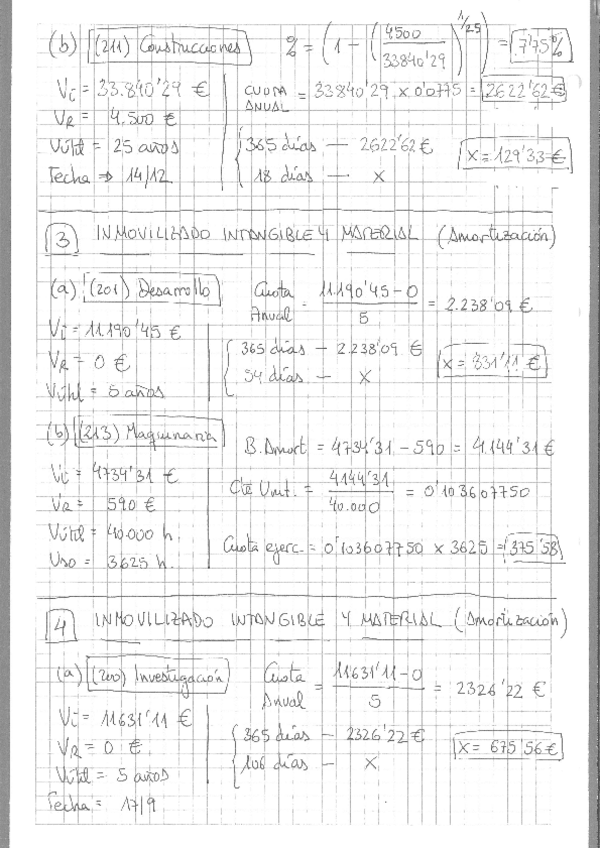 (b) (211) Construcciones % = (1 - (4500 / 33840'29)^1/25) = 7'75%
Vi = 33.840'29 € CUOTA ANUAL = 33840'29 x 0'0775 = 2622'62 €
VR = 4.500 €
Vútil = 25 años { 365 días — 2622'62 €
Fecha ⇒ 14/12 18 días — x x = 129'33 €
3 INMOVILIZADO INTANGIBLE Y MATERIAL (Amortización)
(a) (201) Desarrollo Cuota Anual = 11.190'45 - 0 / 5 = 2.238'09 €
Vi = 11.190'45 €
VR = 0 € { 365 días — 2.238'09 €
Vútil = 5 años 54 días — x x = 331'11 €
(b) (213) Maquinaria B. Amort = 4734'31 - 590 = 4.144'31 €
Vi = 4734'31 € Cte Unit. = 4144'31 / 40.000 = 0'103607750
VR = 590 €
Vútil = 40.000 h.
Uso = 3625 h. Cuota ejerc. = 0'103607750 x 3625 = 375'58
4 INMOVILIZADO INTANGIBLE Y MATERIAL (Amortización)
(a) (200) Investigación Cuota Anual = 11631'11 - 0 / 5 = 2326'22 €
Vi = 11631'11 €
VR = 0 €. { 365 días — 2326'22 €
Vútil = 5 años 106 días — x x = 675'56 €
Fecha = 17/9